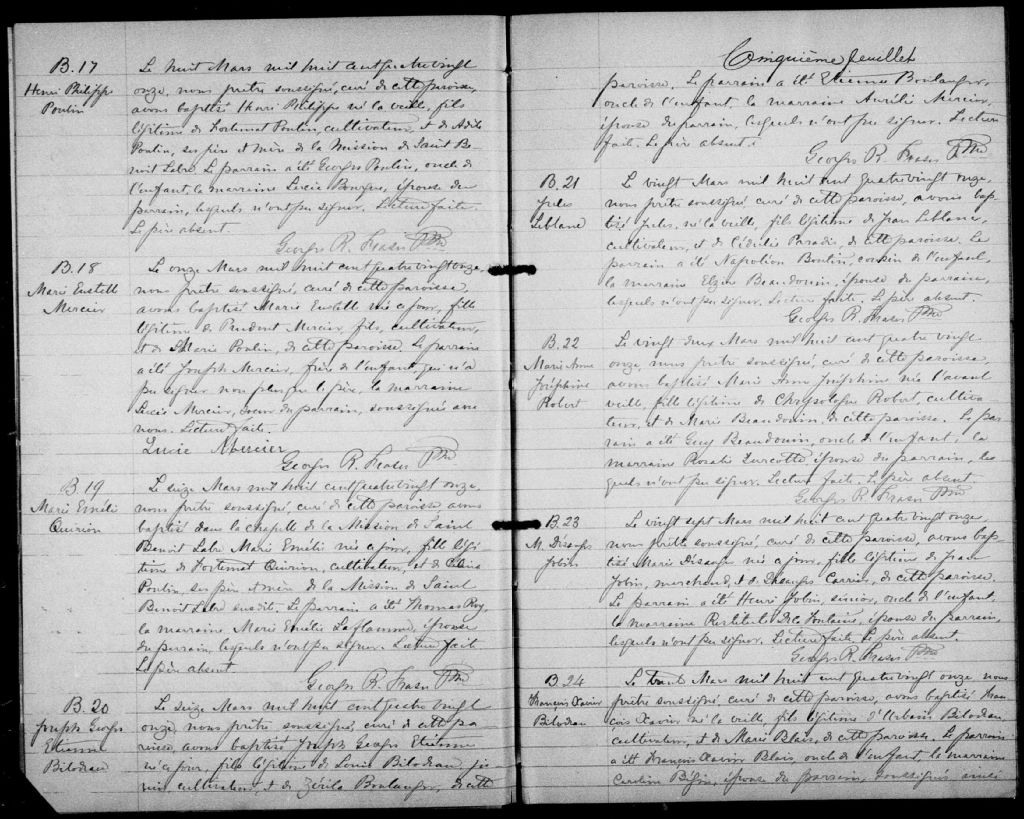 B.17
Henri Philippe
Poulin
Le huit Mars mil huit cent quatre vingt
onze, nous prêtre soussigné, curé de cette paroisse,
avons baptisé Henri Philippe né la veille, fils
légitime de Fortunat Poulin, cultivateur, et de Adèle
Poulin, ses père et mère de la Mission de Saint Be-
noit Labre. Le parrain a été Georges Poulin, oncle de
l'enfant, la marraine Lucie Bourque, épouse du
parrain, lesquels n'ont pu signer. Lecture faite.
Le père absent.
Georges R. Fraser Ptre
B.18
Marie Eustelle
Mercier
Le onze Mars mil huit cent quatre vingt onze,
nous prêtre soussigné, curé de cette paroisse,
avons baptisé Marie Eustelle née ce jour, fille
légitime de Prudent Mercier, fils, cultivateur,
et de Marie Poulin, de cette paroisse. Le parrain
a été Joseph Mercier, frère de l'enfant, qui n'a
pu signer non plus que le père, la marraine
Lucie Mercier, soeur du parrain, soussignée avec
nous. Lecture faite.
Lucie Mercier
Georges R. Fraser Ptre
B.19
Marie Emélie
Quirion
Le seize Mars mil huit cent quatre vingt onze,
nous prêtre soussigné, curé de cette paroisse avons
baptisé dans la chapelle de la Mission de Saint
Benoit Labre Marie Emélie née ce jour, fille légi-
time de Fortunat Quirion, cultivateur, et de
Poulin, ses père et mère de la Mission de Saint
Benoit Labre susdite. Le parrain a été Thomas Roy,
la marraine Marie Emélie Laflamme, épouse
du parrain, lesquels n'ont pu signer. Lecture faite
Le père absent.
Georges R. Fraser Ptre
B.20
Joseph Georges
Etienne
Bilodeau
Le seize Mars mil huit cent quatre vingt
onze, nous prêtre soussigné, curé de cette pa
roisse, avons baptisé Joseph Georges Etienne
né ce jour, fils légitime de Louis Bilodeau, ju
nior, cultivateur, et de Zérila Boulanger, de cette
Cinquième feuillet
paroisse. Le parrain a été Etienne Boulanger,
oncle de l'enfant, la marraine Aurélie Mercier,
épouse du parrain, lesquels n'ont pu signer. Lecture
faite. Le père absent.
Georges R. Fraser Ptre
B.21
Jules
Leblanc
Le vingt Mars mil huit cent quatre vingt onze,
nous prêtre soussigné curé de cette paroisse, avons bap-
tisé Jules, né la veille, fils légitime de Jean Leblanc,
cultivateur, et de Cédélie Paradis, de cette paroisse. Le
parrain a été Napoléon Boutin, cousin de l'enfant,
la marraine Elzire Beaudouin, épouse du parrain,
lesquels n'ont pu signer. Lecture faite. Le père absent.
Georges R. Fraser Ptre
B.22
Marie Anne
Joséphine
Robert
Le vingt deux Mars mil huit cent quatre vingt
onze, nous prêtre soussigné, curé de cette paroisse,
avons baptisé Marie Anne Joséphine née l'avant
veille, fille légitime de Chrysologue Robert, cultiva
teur, et de Marie Beaudouin, de cette paroisse. Le par
rain a été Guy Beaudouin, oncle de l'enfant, la
marraine Rosalie Turcotte, épouse du parrain, les
quels n'ont pu signer. Lecture faite. Le père absent.
Georges R. Fraser Ptre
B.23
M. Désanges
Jobin
Le vingt sept Mars mil huit cent quatre vingt onze,
nous prêtre soussigné, curé de cette paroisse, avons bap
tisé Marie Désanges née ce jour, fille légitime de Jean
Jobin, marchand, et de Désanges Carrier, de cette paroisse.
Le parrain a été Henri Jobin, sénior, oncle de l'enfant,
la marraine Restitule De la Fontaine, épouse du parrain,
lesquels n'ont pu signer. Lecture faite. Le père absent.
Georges R. Fraser Ptre
B.24
François Xavier
Bilodeau
Le trente Mars mil huit cent quatre vingt onze nous
prêtre soussigné, curé de cette paroisse, avons baptisé Fran
çois Xavier né la veille, fils légitime d'Urbain Bilodeau,
cultivateur, et de Marie Blais, de cette paroisse. Le parrain
a été François Xavier Blais, oncle de l'enfant, la marraine
épouse du parrain, soussignés avec